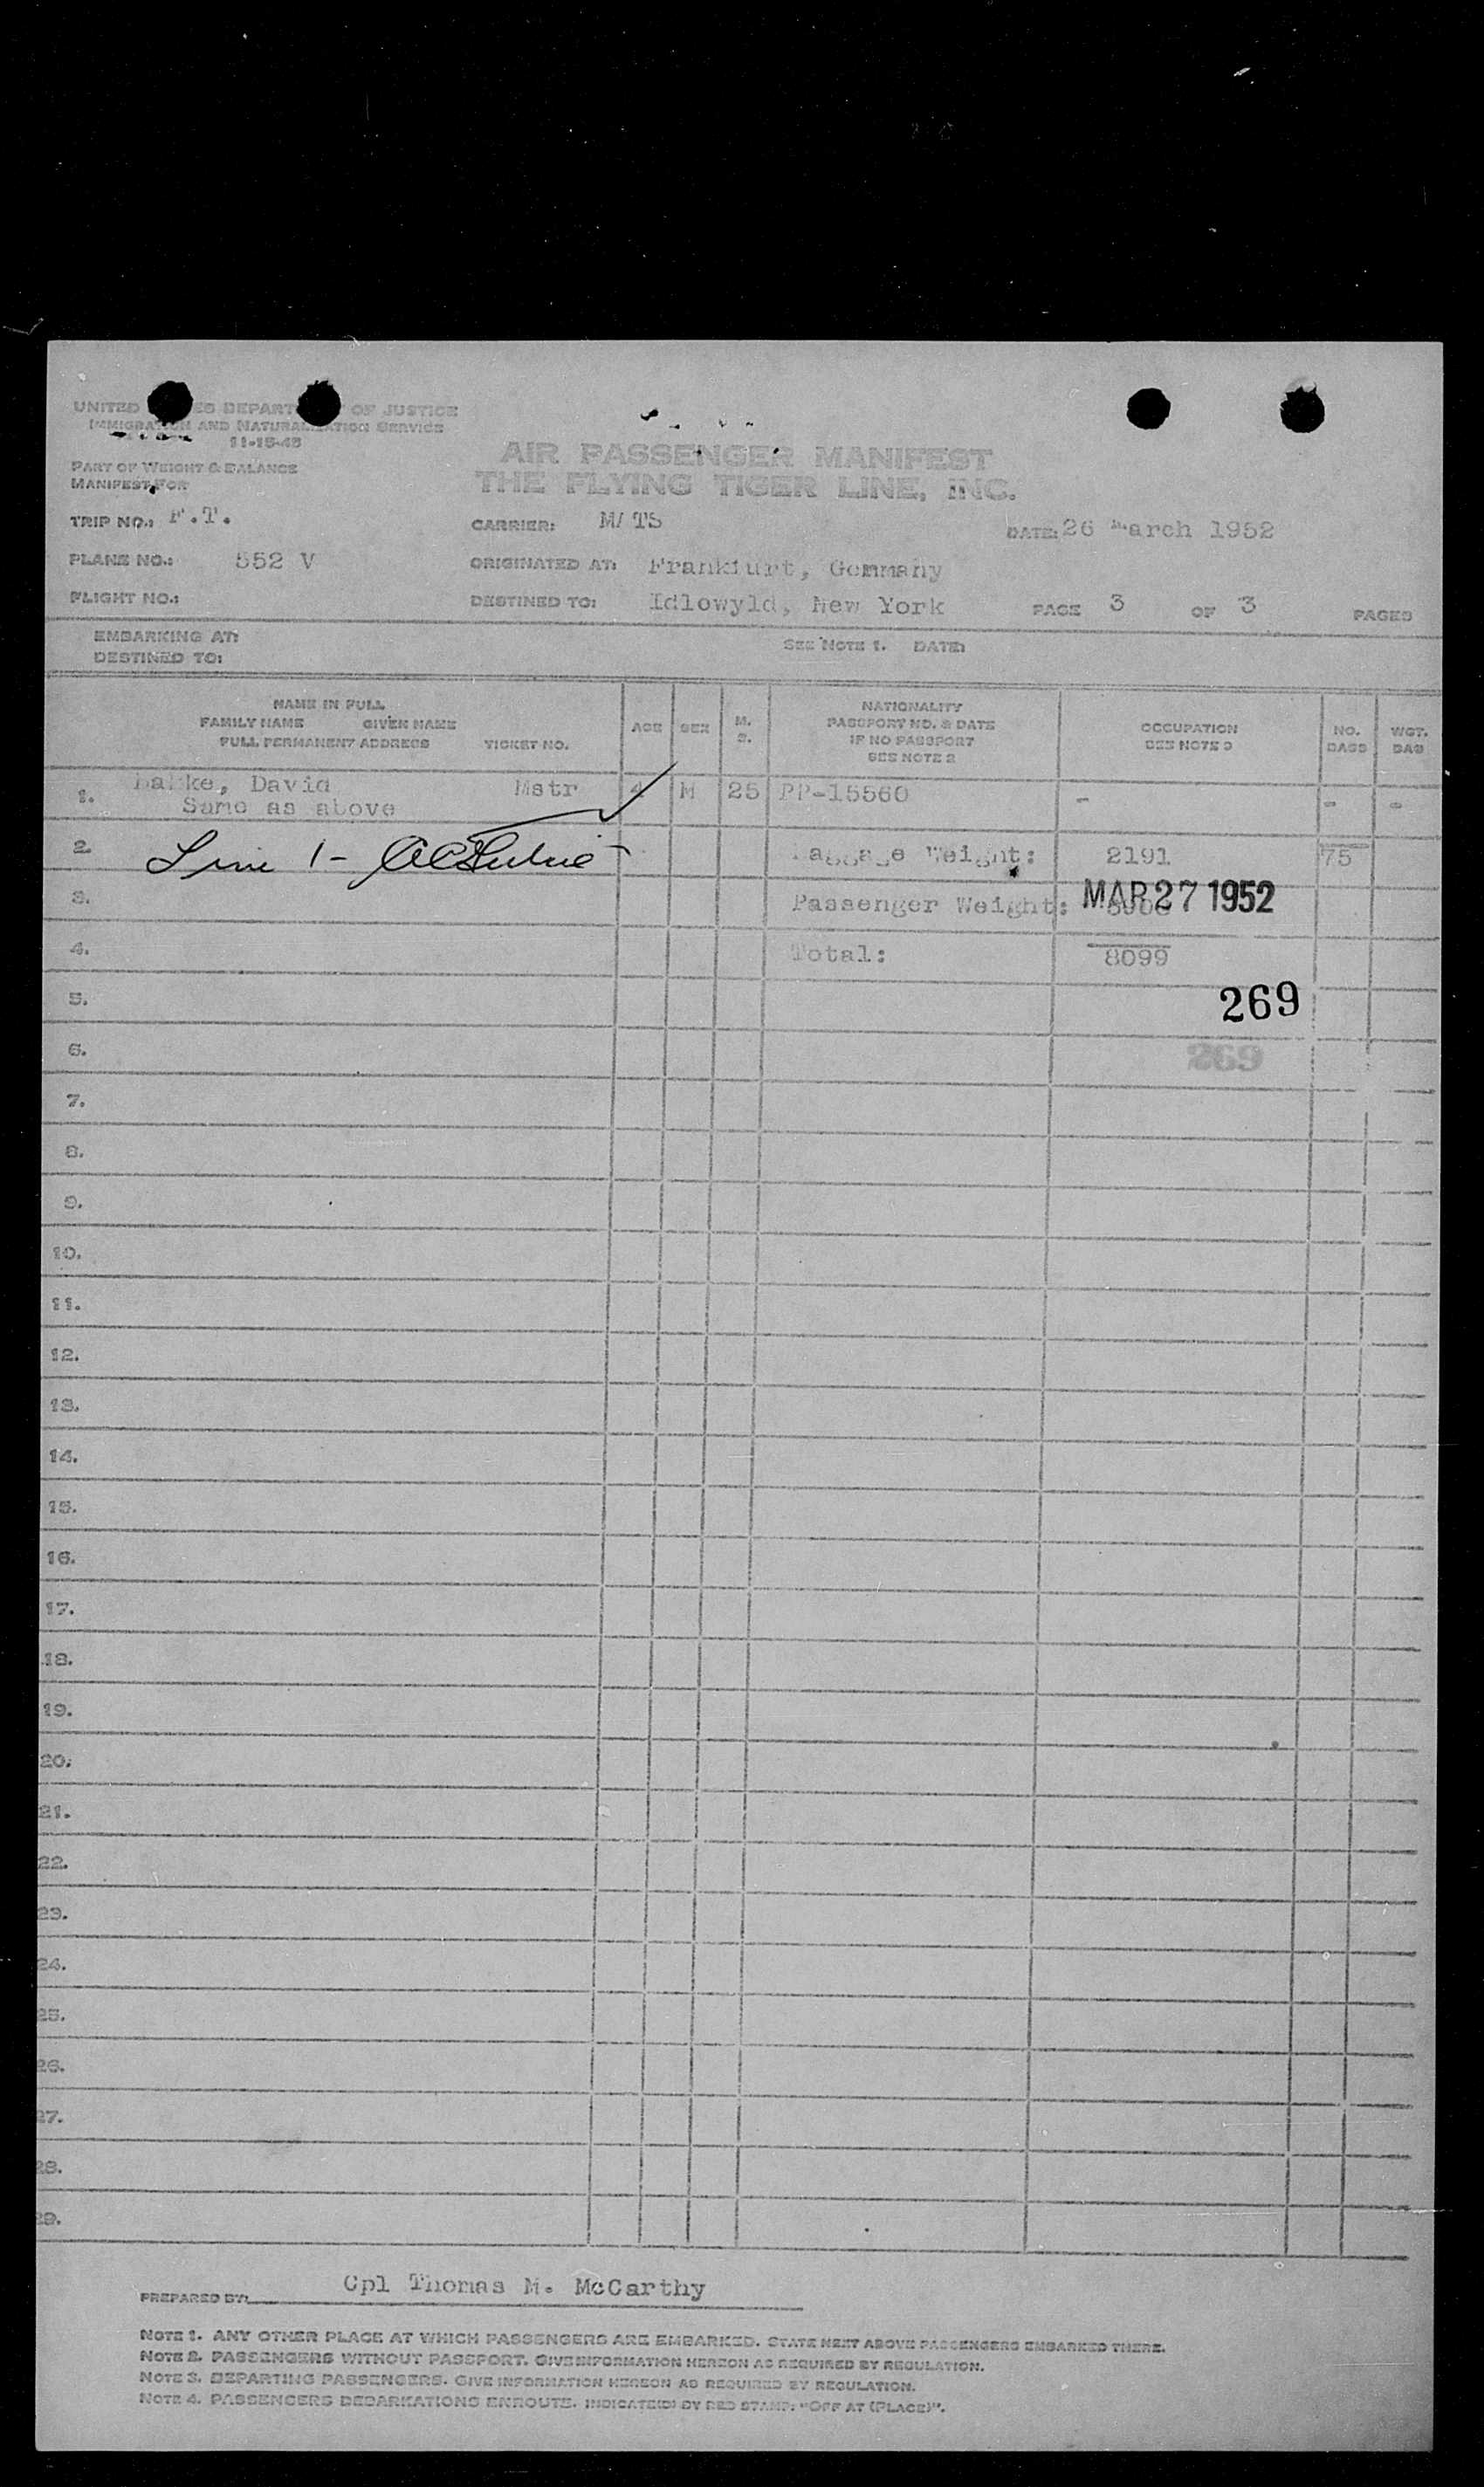 UNITED STATES DEPARTMENT OF JUSTICE
IMMIGRATION AND NATURALIZATION SERVICE
11-15-45
PART OF WEIGHT & BALANCE
MANIFEST FOR
AIR PASSENGER MANIFEST
THE FLYING TIGER LINE, INC.
TRIP NO.: F.T. CARRIER: MATS DATE: 26 March 1952
PLANE NO.: 552 V ORIGINATED AT: Frankfurt, Gemmany
FLIGHT NO.: DESTINED TO: Idlowyld, New York PAGE 3 OF 3 PAGES
EMBARKING AT: SEE NOTE 1. DATE:
DESTINED TO:
NAME IN FULL
FAMILY NAME GIVEN NAME
FULL PERMANENT ADDRESS TICKET NO.
AGE
SEX
M.
S.
NATIONALITY
PASSPORT NO. & DATE
IF NO PASSPORT
SEE NOTE 2
OCCUPATION
SEE NOTE 3
NO.
BAGS
WGT.
BAG
1. David Mstr 4 M 25 PP-15560 - - -
Same as above
2. Line 1 - Baggage Weight: 2191 75
3. Passenger Weight: MAR 27 1952
4. Total: 8099
5. 269
6. 269
7.
8.
9.
10.
11.
12.
13.
14.
15.
16.
17.
18.
19.
20.
21.
22.
23.
24.
25.
26.
27.
28.
29.
PREPARED BY: Cpl Thomas M. McCarthy
NOTE 1. ANY OTHER PLACE AT WHICH PASSENGERS ARE EMBARKED. STATE NEXT ABOVE PASSENGERS EMBARKED THERE.
NOTE 2. PASSENGERS WITHOUT PASSPORT. GIVE INFORMATION HEREON AS REQUIRED BY REGULATION.
NOTE 3. DEPARTING PASSENGERS. GIVE INFORMATION HEREON AS REQUIRED BY REGULATION.
NOTE 4. PASSENGERS DEBARKATIONS ENROUTE. INDICATE(D) BY RED STAMP: "OFF AT (PLACE)".